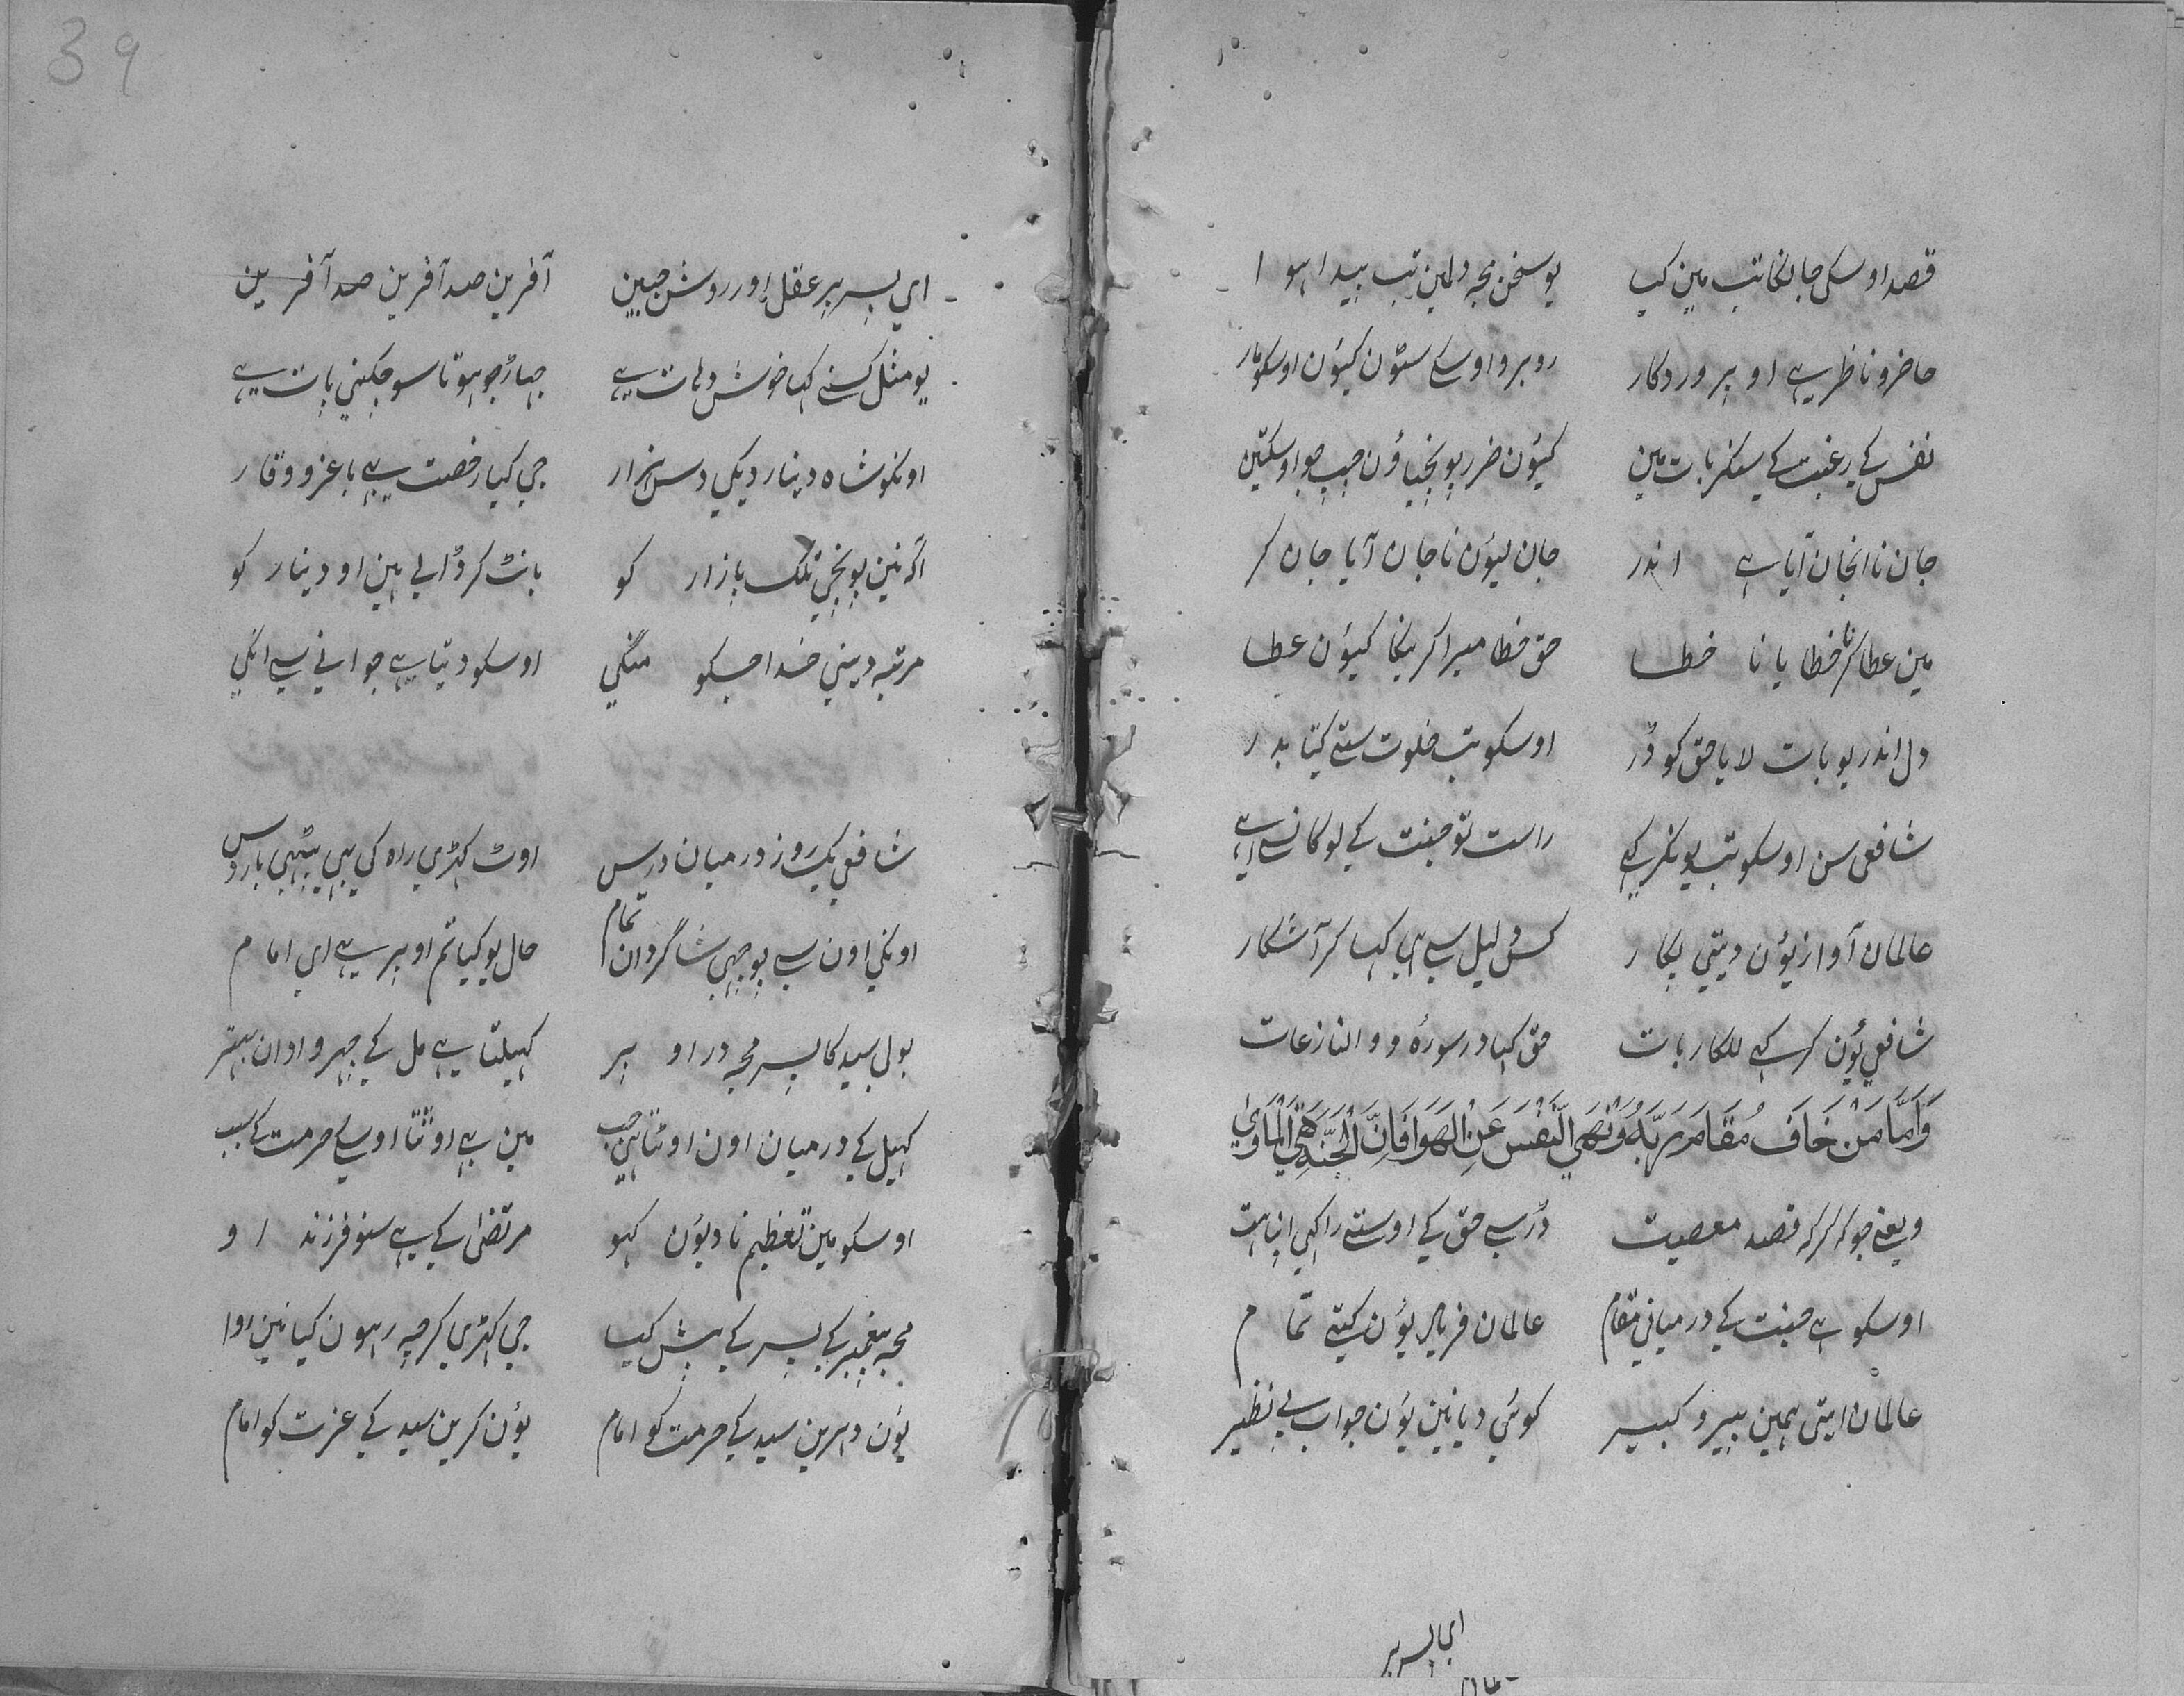 قصد اوسکی جا لگا تب مین کیا یو سخن مجہ دلمین تب پیدا ہوا
حاضر و ناظر ہے او پروردکار روبرو اوسکے سٹون کیوُن اوسکو مار
نفس کے رغبت کے بات مین کیوُن ضرر پونچیاوُن جیب
جان نا انجان آیا ہے اندر جان لیوُن نا جان آیا جان کر
مین عطا کر خطا یا نا خطا حق خطا میرا کریگا کیوُن عطا
دل اندر یو بات لایا حق کو ڈر اوسکو تب خلوت ستے کیتا بدر
شافعی سن اوسکو تب یو کہے راست تو جنت کے لوکان سے اہے
عالمان آواز یوُن دیتی پکار کس دلیل سے ای کہا کر آشکار
شافعی یوُن کر کہے للکار بات حق کہا در سورهٔ و والنازعات
وَاَمَّا مَنْ خَافَ مُقَامَ رَبَّهُ وَنَهَي الَّنفْسَ عَنِ الْهَوَا فَاِنَّ الْجَنَّةَ هِيَ الْمَاوَيٰ
و یعنے جو کہ کر کہ قصد معصیت ڈر سے حق کے اوستے راکھی اپنا ہت
اوسکو ہے جنت کے درمیانی مقام عالمان فریاد یوُن کیتے تمام
عالمان ایتی ہمین پیر و کبیر کوئی دیا نین یوُن جواب بے نظیر
ای پسر پر
39
ای پسر پر عقل اور روشن جبین آفرین صد آفرین صد آفرین
یو مثل کسنے کہا خوش دہات ہے جہاڑ جو ہوتا سو چکنی بات ہے
اونکو شاہ دینار دیکی دس ہزار جی کیا رخصت ہے با عز و وقار
اگہ نین پونچی تلک بازار کو بانٹ کر ڈالی ہین او دینار کو
مرتبہ دینی خدا جسکو منگی اوسکو دیتا ہے جوانی سے انگی
شافعی یک روز درمیان درس اوٹ کہڑی راہ کی بیٹہی بار دس
اونکی اون سے پوچہی شاگردان تمام حال یو کیا تم اوپر ہے ای امام
بول سید کا پسر مجہ در اوپر کہیلتا ہے مل کے
کہیل کے درمیان اون اوٹتا ہین جب مین بہے اوٹتا اوسکے حرمت کے سبب
اوسکو مین تعظیم نا دیوُن کہو مرتضٰی کے ہے سنو فرزند او
مجہ پیغمبر کے پسر کے پیش کیا جی کہڑی کر چپ رہون کیا نین روا
یوُن دہرین سید کے حرمت کو امام یوُن کرین سید کے عزت کو امام